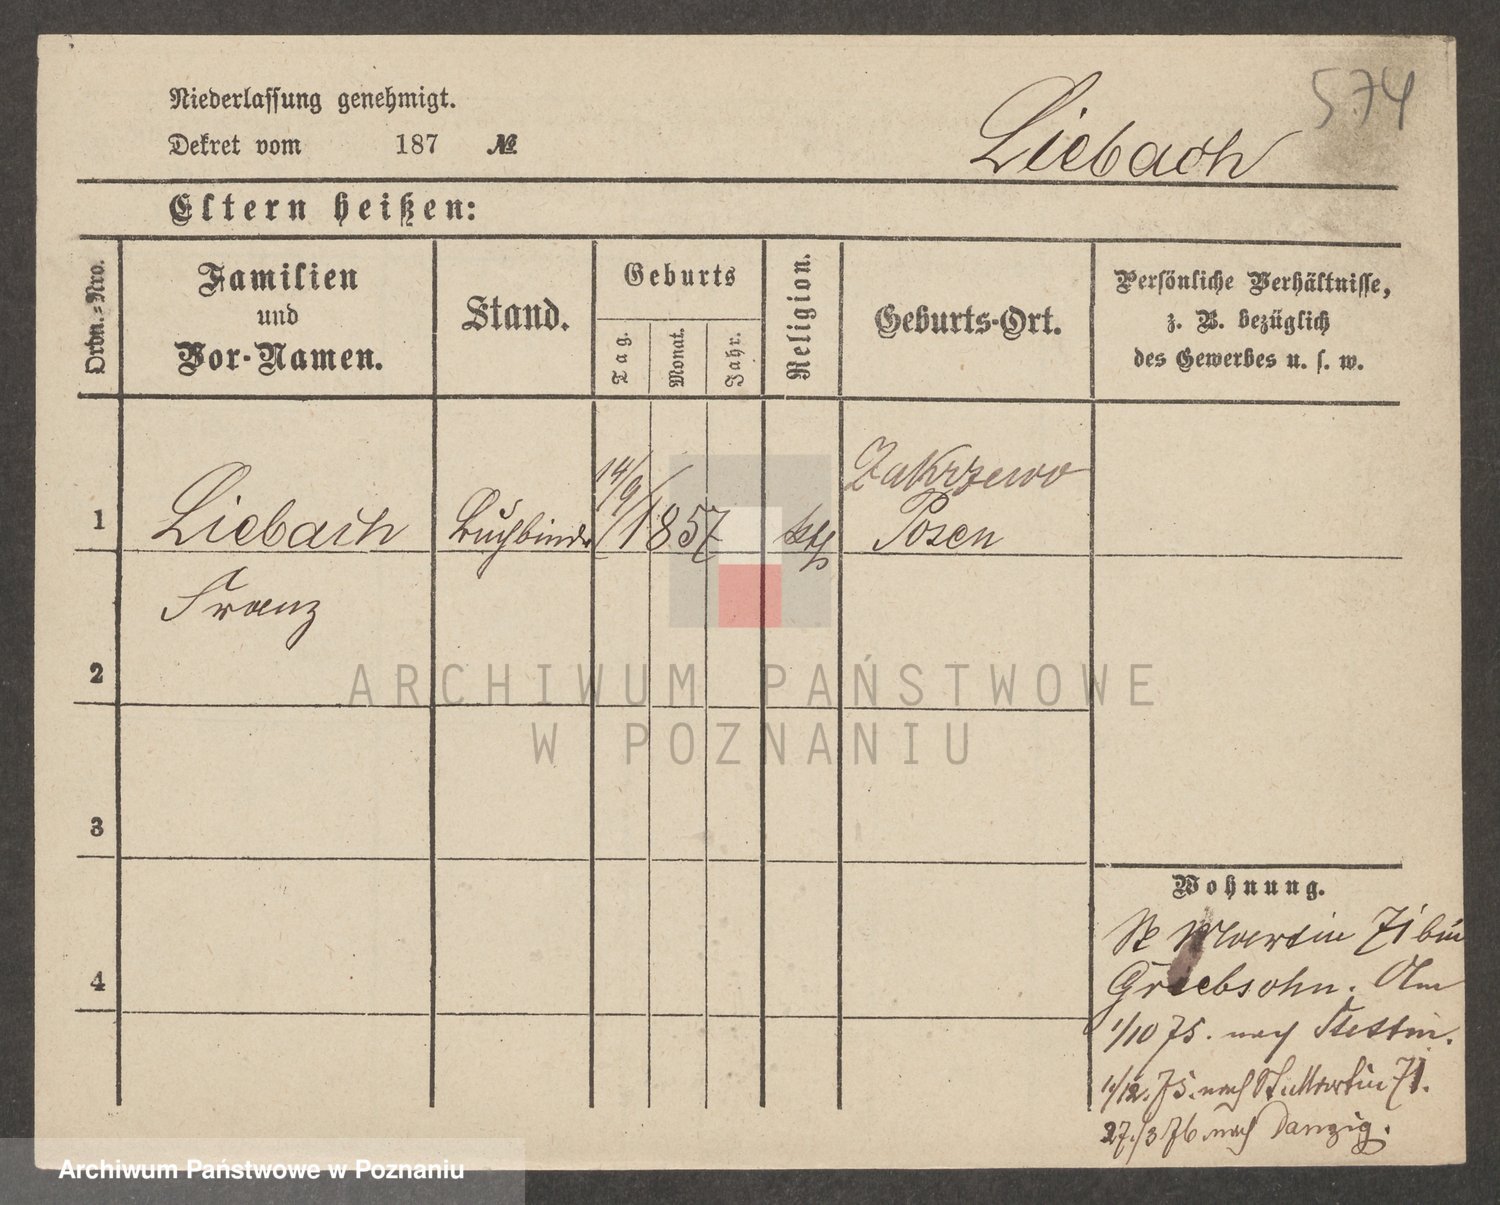 Niederlassung genehmigt.
Dekret vom 187 №
Liebach
574
Eltern heißen:
Ordn.-Nro.
Familien
und
Vor-Namen.
Stand.
Geburts
Tag.
Monat.
Jahr.
Religion.
Geburts-Ort.
Persönliche Verhältnisse,
z. B. bezüglich
des Gewerbes u. s. w.
1
Liebach
Franz
Buchbinder
14/9 1857
kth
Zakrzewo
Posen
2
3
4
Wohnung.
St Martin 71 bei
Griebsohn. Am
1/10 75. nach Stettin.
1/12. 75. nach St Martin 71.
27/3 76 nach Danzig.
ARCHIWUM PAŃSTWOWE
W POZNANIU
Archiwum Państwowe w Poznaniu